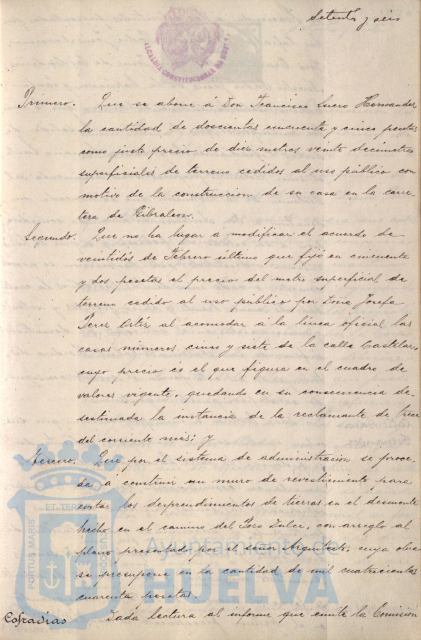 Setenta y seis
ALCALDIA CONSTITUCIONAL DE
Primero. Que se abone á Don Francisco Suero Hernandez
la cantidad de doscientas cincuenta y cinco pesetas
como justo precio de diez metros veinte decimetros
superficiales de terreno cedidos al uso público con
motivo de la construccion de su casa en la carre-
tera de Gibraleon.
Segundo. Que no ha lugar a modificar el acuerdo de
veintidós de Febrero último que fijó en cincuenta
y dos pesetas el precio del metro superficial de
terreno cedido al uso público por Doña Josefa
Perez al acomodar á la línea oficial las
casas números cinco y siete de la calle Castelar,
cuyo precio es el que figura en el cuadro de
valores vigente, quedando en su consecuencia de-
sestimada la instancia de la reclamante de trece
del corriente mes; y
Tercero. Que por el sistema de administracion se proce-
da á construir un muro de revestimiento para
evitar los desprendimientos de tierras en el desmonte
hecho en el camino del, con arreglo al
plano presentado por el señor Arquitecto, cuya obra
se presupone en la cantidad de mil cuatrocientas
cuarenta pesetas.
Cofradías Dada lectura al informe que emite la Comision
PORTUS MARIS ET TERRAE CUSTODIA
Ayuntamiento de
HUELVA